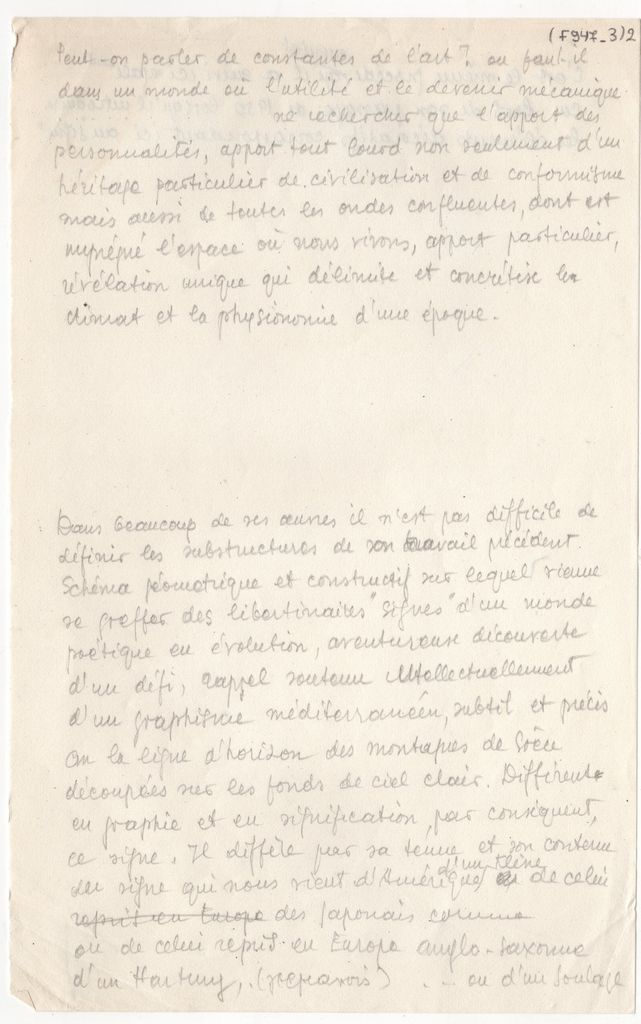 (F947_3)2
Peut-on parler de constantes de l'art ? ou faut-il
dans un monde où l'utilité et le devenir mécanique
ne rechercher que l'apport des
personnalités, apport tout lourd non seulement d'un
héritage particulier de civilisation et de conformisme
mais aussi de toutes les ondes confluentes, dont est
imprégné l'espace où nous vivons, apport particulier,
révélation unique qui délimite et concrétise le
climat et la physionomie d'une époque.
Dans beaucoup de ses œuvres il n'est pas difficile de
définir les substructures de son travail précédent.
Schéma géométrique et constructif sur lequel vienne
se greffer des libertinaires "signes" d'un monde
poétique en évolution, aventureuse découverte
d'un défi, rappel soutenu intellectuellement
d'un graphisme méditerranéen, subtil et précis
on la ligne d'horizon des montagnes de Grèce
découpées sur les fonds de ciel clair. Différente
en graphie et en signification, par conséquent,
ce signe. Il diffère par sa tenue et son contenu
du signe qui nous vient d'Amérique, d'un Kline, de celui
repris en Europe des Japonais comme
ou de celui repris en Europe anglo-saxonne
d'un Hartung, ... ou d'un Soulage